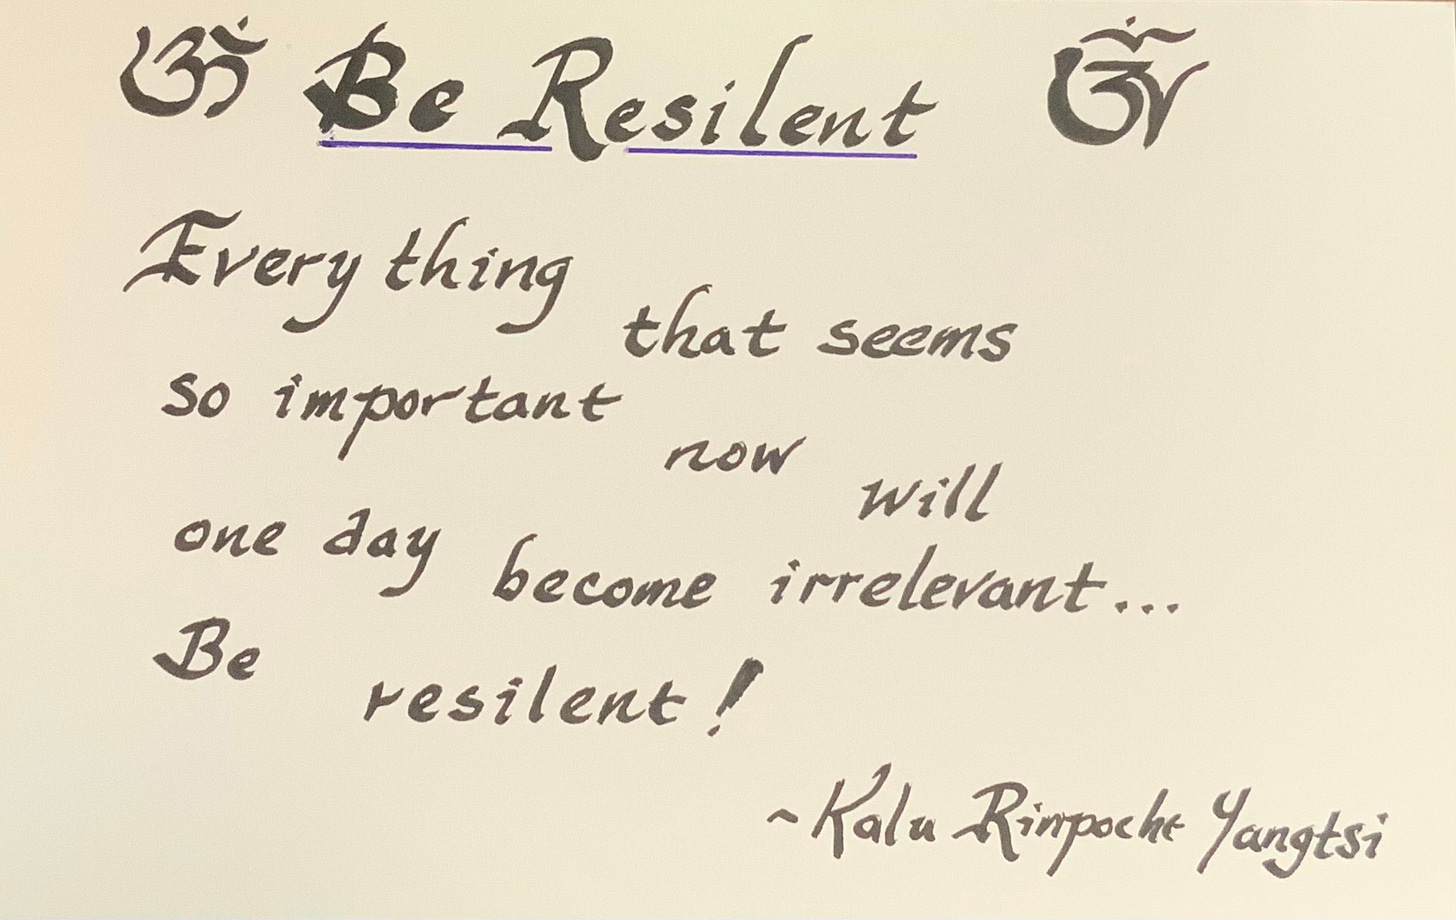 ॐ Be Resilent ॐ
Every thing that seems
so important now will
one day become irrelevant...
Be resilent!
~Kalu Rinpoche Yangtsi